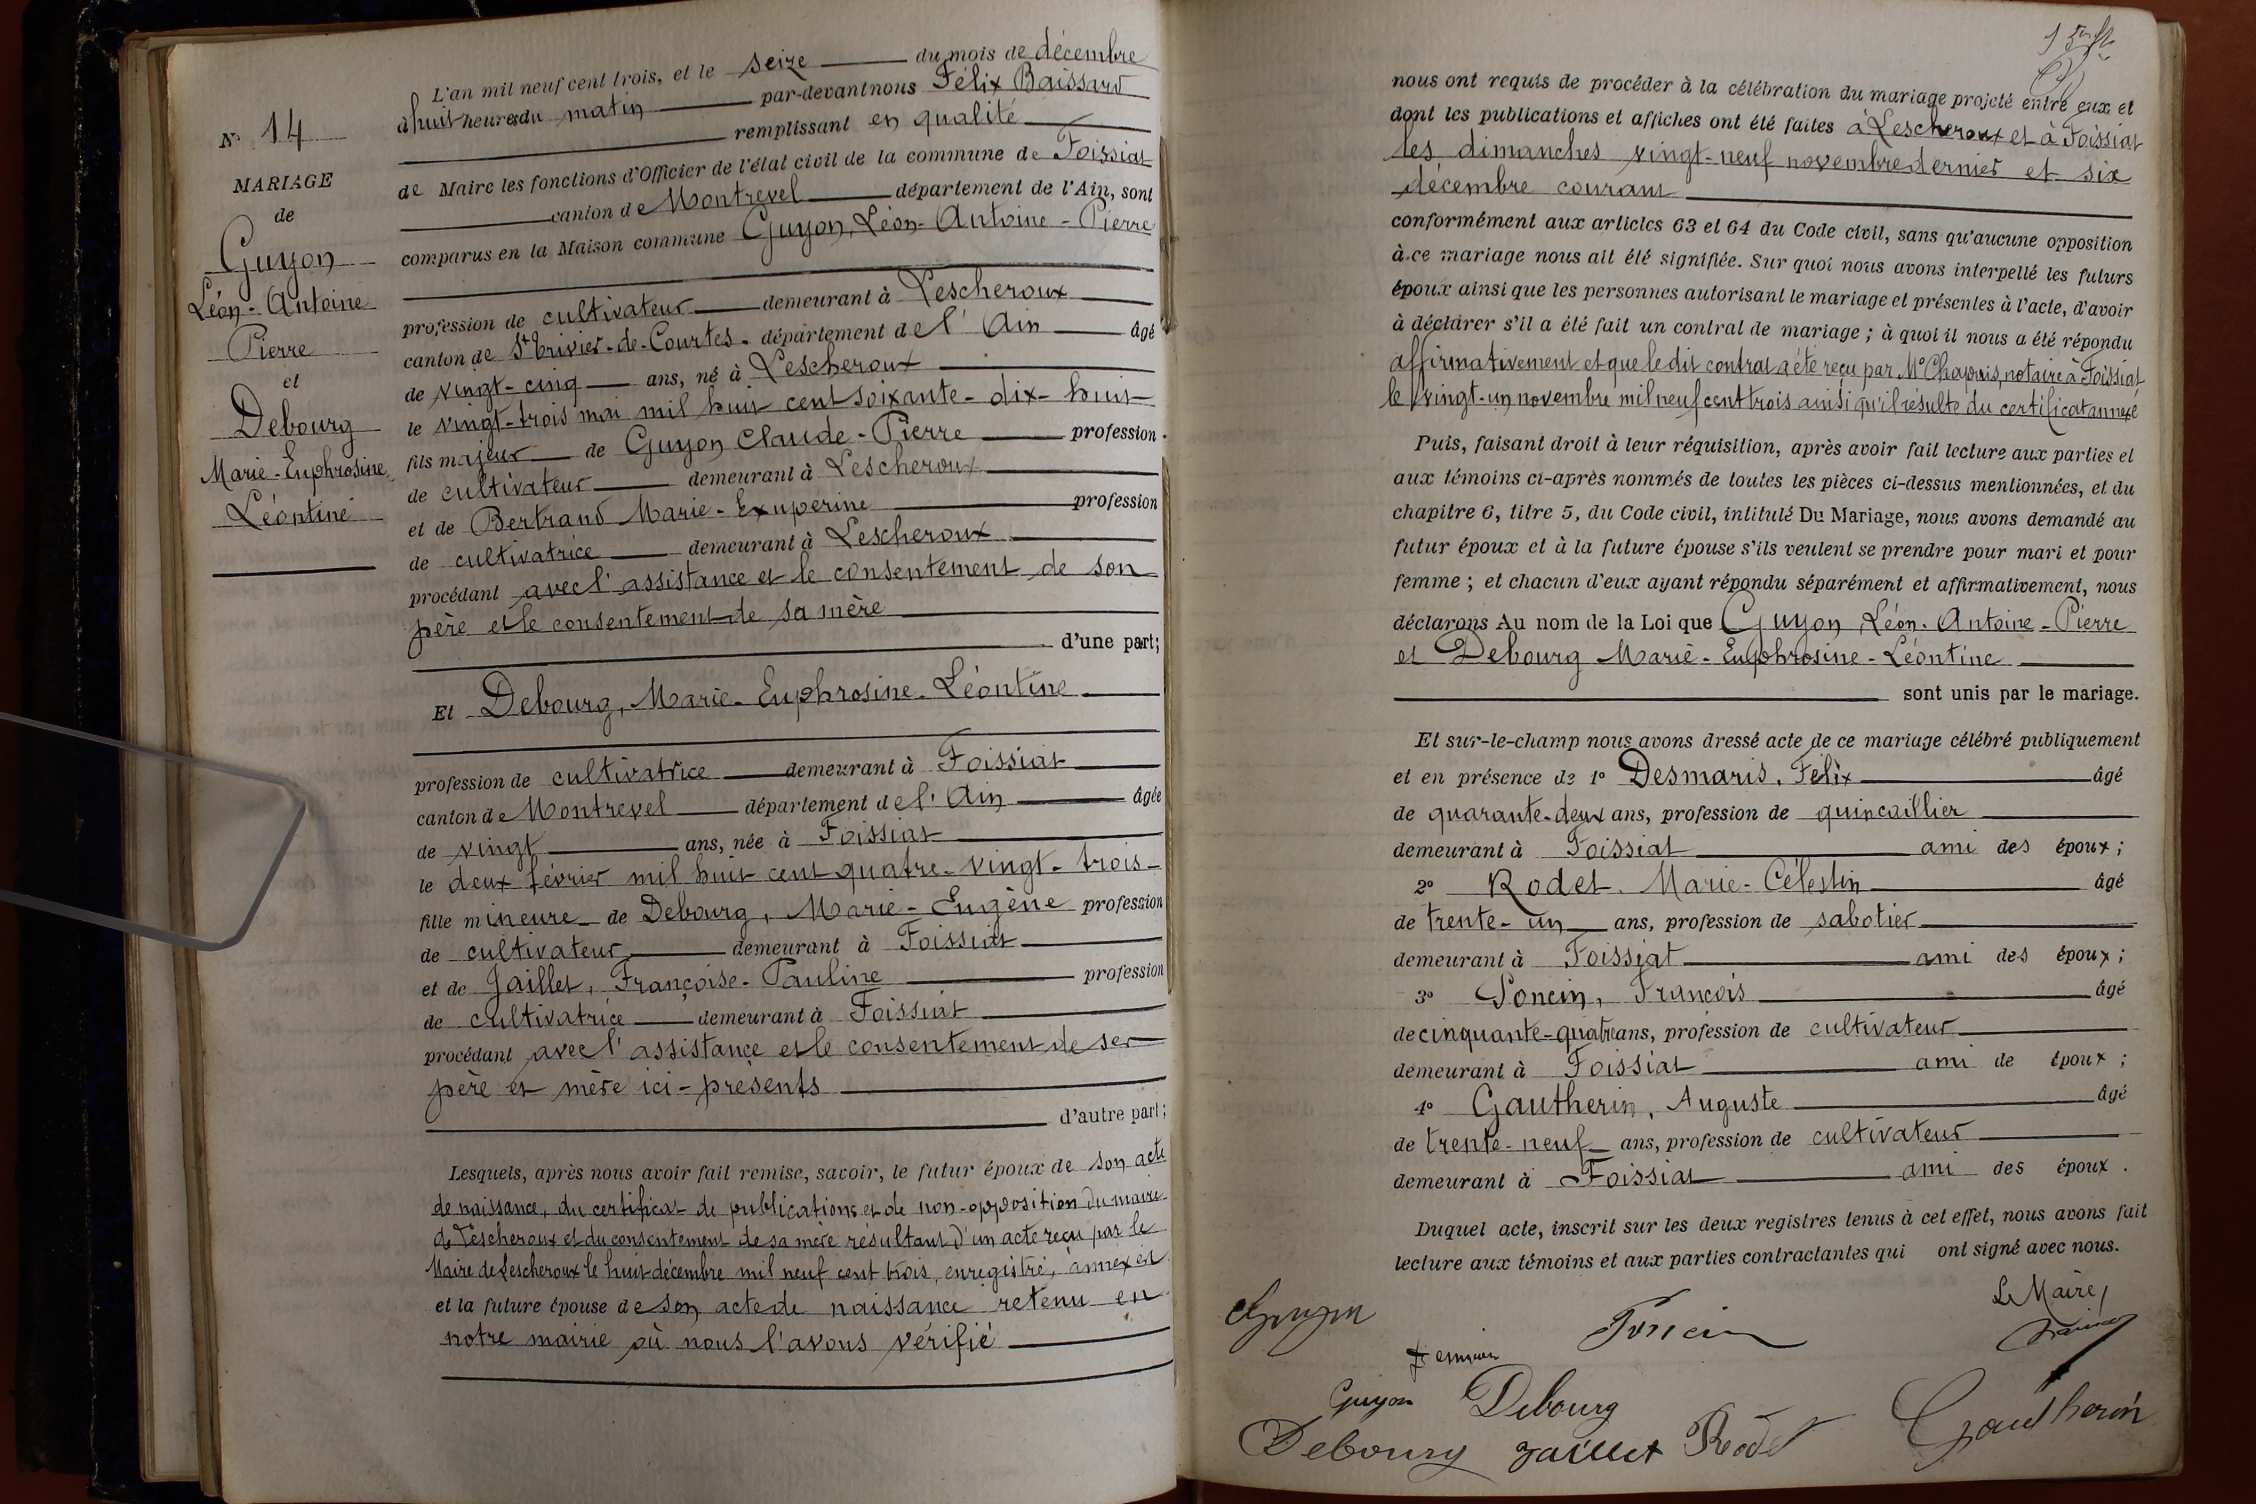 N° 14
MARIAGE
de
Guyon
Léon-Antoine
Pierre
et
Debourg
Marie-Euphrosine
Léontine
L'an mil neuf cent trois, et le seize du mois de décembre
à huit heures du matin par-devant nous Félix Baissard
remplissant en qualité
de Maire les fonctions d'Officier de l'état civil de la commune de Foissiat
canton de Montrevel département de l'Ain, sont
comparus en la Maison commune Guyon, Léon-Antoine-Pierre
profession de cultivateur demeurant à Lescheroux
canton de St Trivier-de-Courtes. département de l'Ain âgé
de vingt-cinq ans, né à Lescheroux
le vingt-trois mai mil huit cent soixante-dix-huit
fils majeur de Guyon Claude-Pierre profession
de cultivateur demeurant à Lescheroux
et de Bertrand Marie-Exuperine profession
de cultivatrice demeurant à Lescheroux
procédant avec l'assistance et le consentement de son
père et le consentement de sa mère
d'une part;
Et Debourg, Marie-Euphrosine-Léontine
profession de cultivatrice demeurant à Foissiat
canton de Montrevel département de l'Ain âgée
de vingt ans, née à Foissiat
le deux février mil huit cent quatre-vingt-trois
fille mineure de Debourg, Marie-Eugène profession
de cultivateur demeurant à Foissiat
et de Jaillet, Françoise-Pauline profession
de cultivatrice demeurant à Foissiat
procédant avec l'assistance et le consentement de ses
père et mère ici-présents
d'autre part;
Lesquels, après nous avoir fait remise, savoir, le futur époux de son acte
de naissance, du certificat de publications et de non-opposition du maire
de Lescheroux et du consentement de sa mère résultant d'un acte reçu par le
Maire de Lescheroux le huit décembre mil neuf cent trois, enregistré, annexés
et la future épouse de son acte de naissance retenu en
notre mairie où nous l'avons vérifié
nous ont requis de procéder à la célébration du mariage projeté entre eux et
dont les publications et affiches ont été faites à Lescheroux et à Foissiat
les dimanches vingt-neuf novembre dernier et six
décembre courant
conformément aux articles 63 et 64 du Code civil, sans qu'aucune opposition
à ce mariage nous ait été signifiée. Sur quoi nous avons interpellé les futurs
époux ainsi que les personnes autorisant le mariage et présentes à l'acte, d'avoir
à déclarer s'il a été fait un contrat de mariage ; à quoi il nous a été répondu
affirmativement et que le dit contrat a été reçu par Me Chapuis, notaire à Foissiat
le vingt-un novembre mil neuf cent trois ainsi qu'il résulte du certificat annexé
Puis, faisant droit à leur réquisition, après avoir fait lecture aux parties et
aux témoins ci-après nommés de toutes les pièces ci-dessus mentionnées, et du
chapitre 6, titre 5, du Code civil, intitulé Du Mariage, nous avons demandé au
futur époux et à la future épouse s'ils veulent se prendre pour mari et pour
femme ; et chacun d'eux ayant répondu séparément et affirmativement, nous
déclarons Au nom de la Loi que Guyon, Léon-Antoine-Pierre
et Debourg Marie-Euphrosine-Léontine
sont unis par le mariage.
Et sur-le-champ nous avons dressé acte de ce mariage célébré publiquement
et en présence de 1° Desmaris, Félix âgé
de quarante-deux ans, profession de quincaillier
demeurant à Foissiat ami des époux ;
2° Rodet. Marie-Célestin âgé
de trente-un ans, profession de sabotier
demeurant à Foissiat ami des époux ;
3° Poncin, François âgé
de cinquante-quatre ans, profession de cultivateur
demeurant à Foissiat ami de époux ;
4° Gautherin, Auguste âgé
de trente-neuf ans, profession de cultivateur
demeurant à Foissiat ami des époux.
Duquel acte, inscrit sur les deux registres tenus à cet effet, nous avons fait
lecture aux témoins et aux parties contractantes qui ont signé avec nous.
Le Maire,
Guyon Poncin
Guyon Debourg
Debourg Jaillet Rodet Gautherin